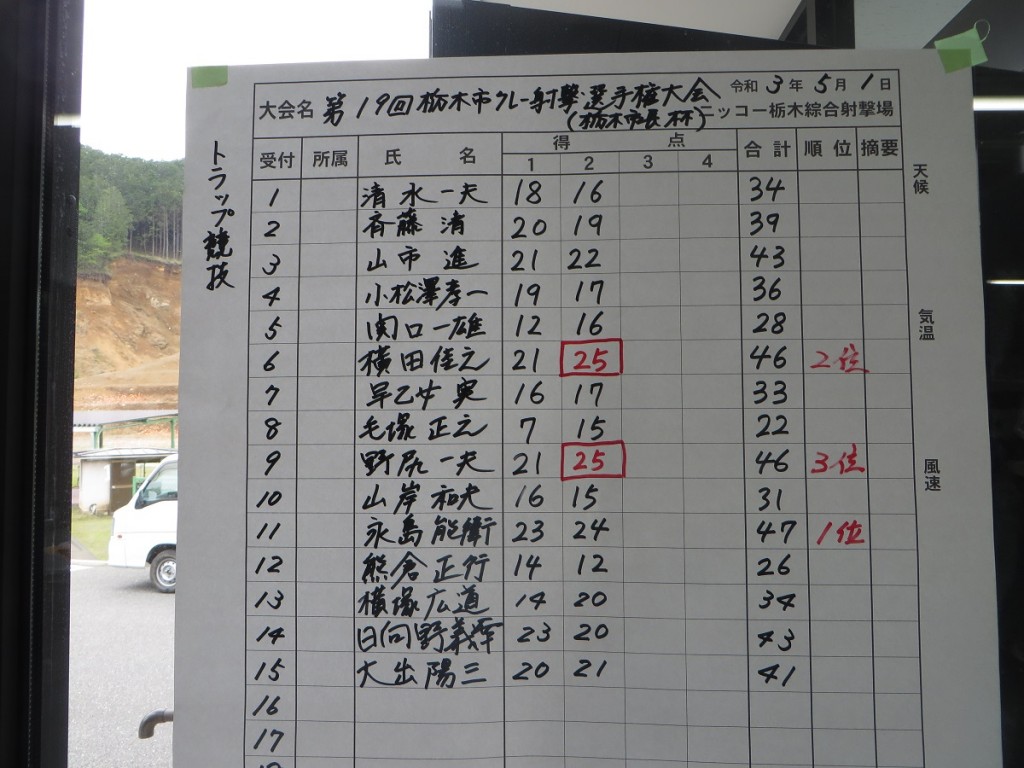 令和 3 年 5 月 1 日
大会名 第19回栃木市クレー射撃選手権大会
(栃木市長杯) ニッコー栃木綜合射撃場
トラップ競技
受付 所属 氏 名 得 点 合計 順位 摘要
1 2 3 4
1 清水 一夫 18 16 34
2 斉藤 清 20 19 39
3 山市 進 21 22 43
4 小松澤孝一 19 17 36
5 関口一雄 12 16 28
6 横田佳之 21 25 46 2位
7 早乙女 実 16 17 33
8 毛塚 正之 7 15 22
9 野尻 一夫 21 25 46 3位
10 山岸 和夫 16 15 31
11 永島 能衛 23 24 47 1位
12 熊倉 正行 14 12 26
13 横塚 広道 14 20 34
14 日向野義 23 20 43
15 大出 陽三 20 21 41
16
17
天候
気温
風速